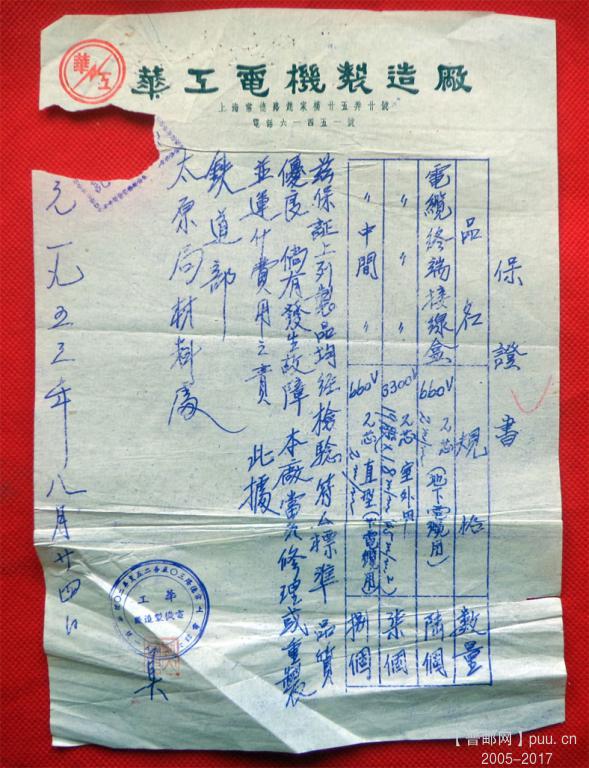 華工
華工電機製造廠
上海常德路趙家橋廿五弄廿號
電話六一四五一號
保證書
品名 規格 數量
電纜終端接線盒 660V 三芯 (地下電纜用) 陸個
〃 〃 〃 3300V 三芯 室外用 柒個
〃 中間 〃 660V 三芯 直型 (地下電纜用) 捌個
茲保証上列製品均經檢驗符合標準品質
優良倘有發生故障本廠當負修理或重製
並運什費用之責 此據
鉄道部
太原局材料處
一九五三年八月廿四日
華工
電機製造廠
【普邮网】puu.cn
2005-2017